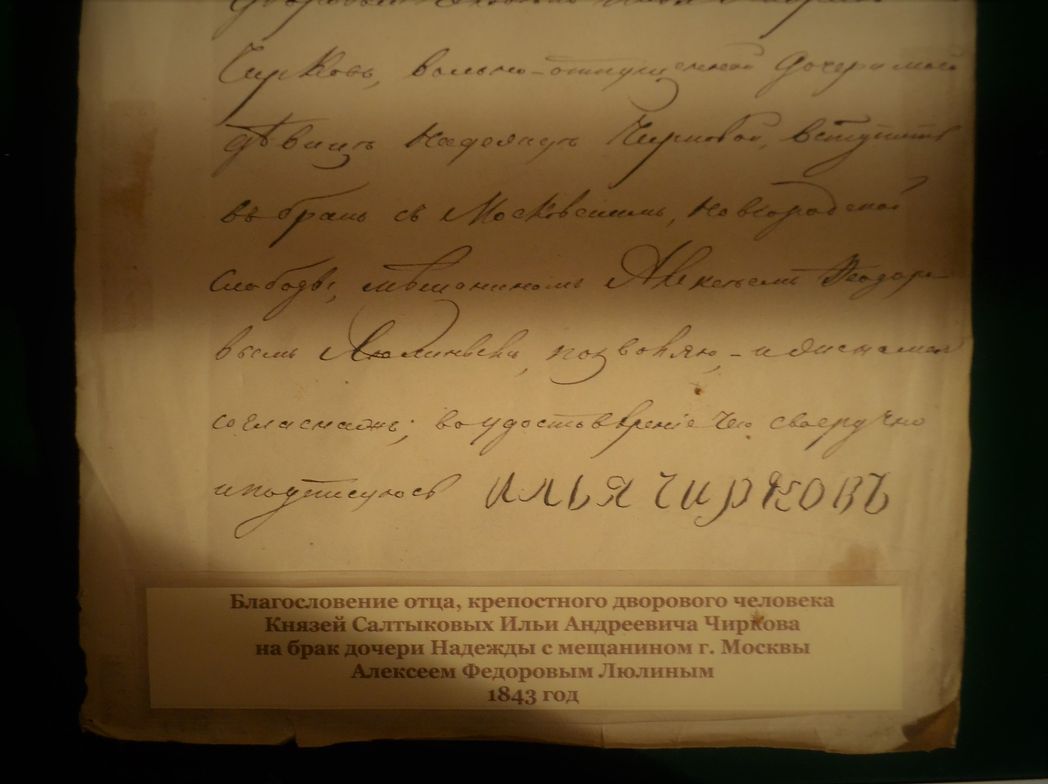 Чирковъ, вольно-отпущенной дочери моей
дѣвицѣ Надеждѣ Чирковой, вступить
въ бракъ съ Московскимъ, Новгородской
слободы, мѣщаниномъ Алексѣемъ Ѳедоро
вымъ Люлинымъ, позволяю,
согласенъ; во удостовѣреніе чего своеручно
и подписуюсь Илья Чирковъ
Благословение отца, крепостного дворового человека
Князей Салтыковых Ильи Андреевича Чиркова
на брак дочери Надежды с мещанином г. Москвы
Алексеем Федоровым Люлиным
1843 год